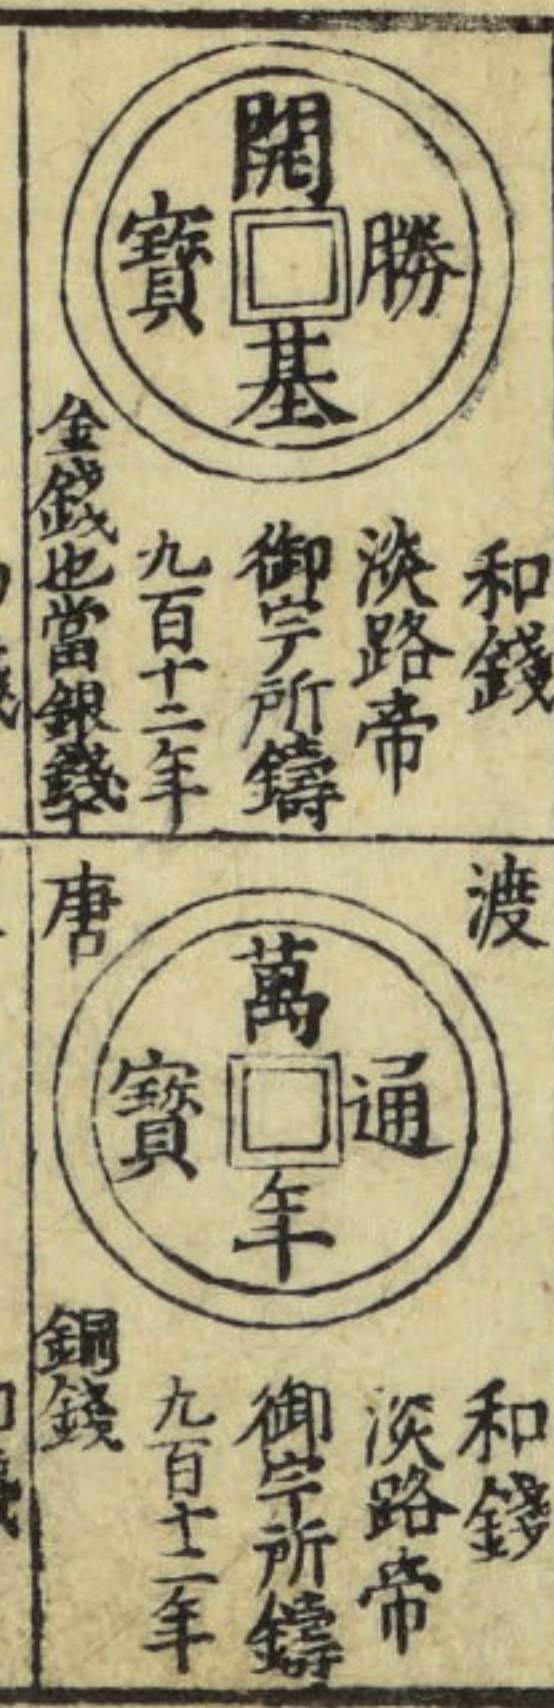 開基勝寶
和錢
淡路帝
御宇所鑄
九百十二年
金錢也當銀錢十
渡唐
萬年通寶
和錢
淡路帝
御宇所鑄
九百十二年
銅錢